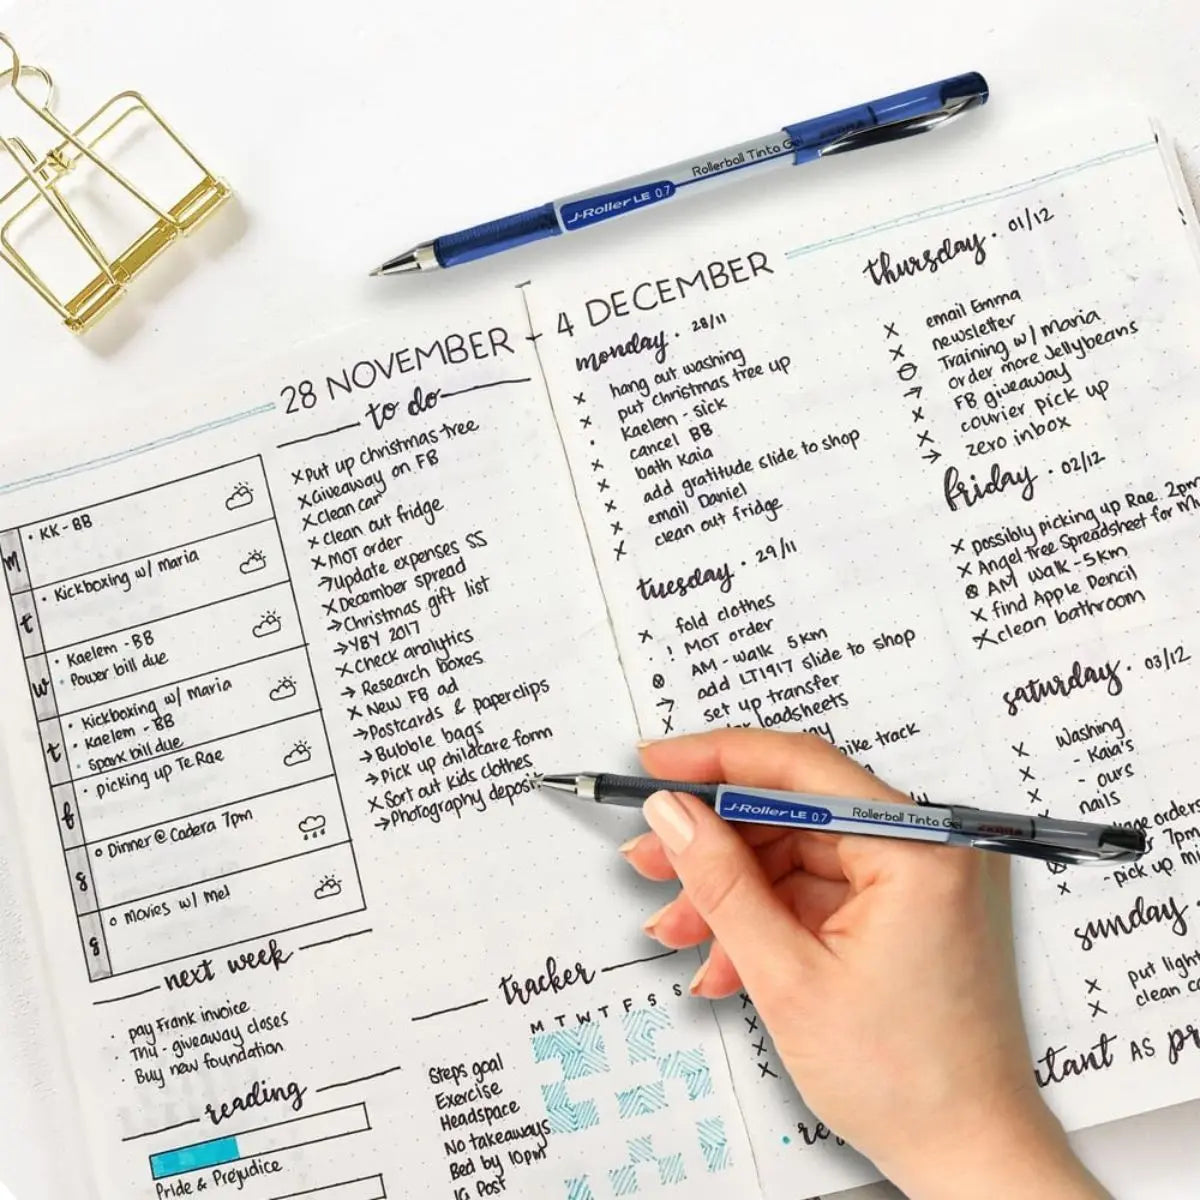 J-Roller LE 0.7
Rollerball Tinta Gel
ZEBRA
28 NOVEMBER - 4 DECEMBER
m
• KK - BB
t
• Kickboxing w/ maria
w
• Kaelem - BB
• Power bill due
t
• Kickboxing w/ Maria
• Kaelem - BB
• Spark bill due
f
• picking up Te Rae
s
o Dinner @ Cadera 7pm
s
o Movies w/ Mel
to do
x Put up christmas tree
x Giveaway on FB
x Clean car
x Clean out fridge
x MOT order
→ Update expenses SS
x December spread
→ Christmas gift list
→ YBY 2017
x Check analytics
→ Research boxes
x New FB ad
→ Postcards & paperclips
→ Bubble bags
→ Pick up childcare form
x Sort out kids clothes
→ Photography deposit
next week
• pay Frank invoice
• Thu - giveaway closes
• Buy new foundation
reading
Pride & Prejudice
tracker
M T W T F S S
Steps goal
Exercise
Headspace
No takeaways
Bed by 10pm
IG Post
monday • 28/11
x hang out washing
x put christmas tree up
• Kaelem - sick
x cancel BB
x bath Kaia
x add gratitude slide to shop
x email Daniel
x clean out fridge
tuesday • 29/11
x fold clothes
• ! MOT order
⊗ AM - walk 5km
→ add LT1917 slide to shop
x set up transfer
loadsheets
bike track
thursday • 01/12
x email Emma
x newsletter
⊖ Training w/ maria
→ order more Jellybeans
x FB giveaway
x courier pick up
→ zero inbox
friday • 02/12
x possibly picking up Rae 2pm
x Angel tree spreadsheet for
⊗ AM walk - 5km
x find Apple Pencil
x clean bathroom
saturday • 03/12
x Washing
x - Kaia's
x - ours
x nails
orders
7pm
x - pick up
sunday •
x put
x clean
J-Roller LE 0.7
Rollerball Tinta Gel
ZEBRA
AS